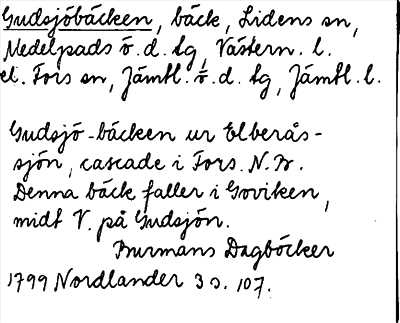 Gudsjöbäcken, bäck, Lidens sn,
Medelpads ö. d. tg, Västern. l.
el. Fors sn, Jämtl. ö. d. tg, Jämtl. l.
Gudsjö-bäcken ur Elberås-
sjön, cascade i Fors. N. W.
Denna bäck faller i Goviken,
midt V. på Gudsjön.
Burmans Dagböcker
1799 Nordlander 3 s. 107.